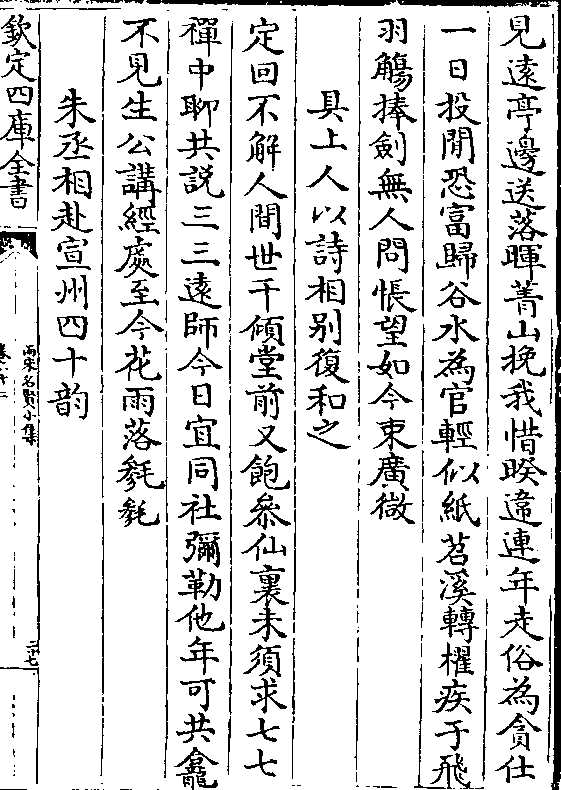 見遠亭邊送落暉菁山挽我惜暌違連年走俗為貪仕
一日投閒恐富歸谷水為官輕似紙苕溪轉櫂疾于飛
羽觴捧劍無人問悵望如今束廣微
具上人以詩相別復和之
定回不解人間世千傾堂前又飽叅仙裏未須求七七
禪中聊共説三三遠師今日宜同社彌勒他年可共龕
不見生公講經處至今花雨落毿毿
朱丞相赴宣州四十韵
欽定四庫全書
兩宋名賢小集